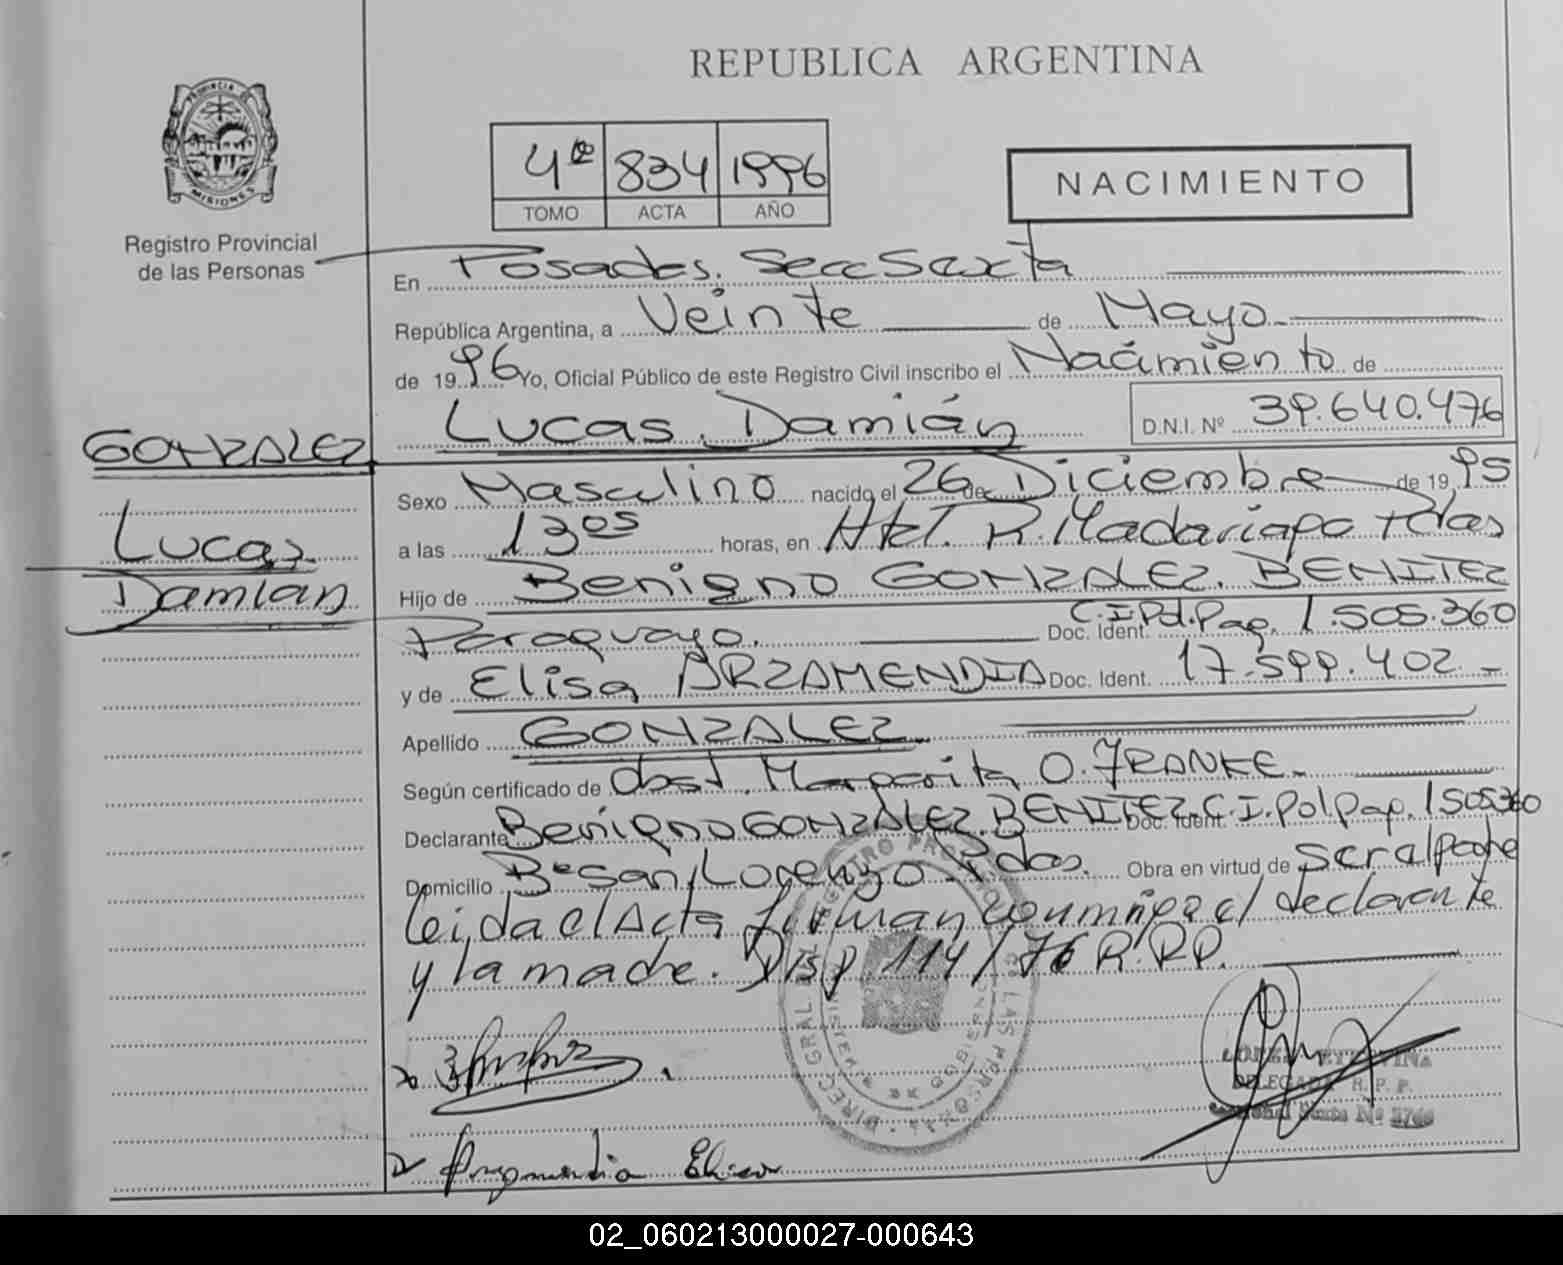 REPUBLICA ARGENTINA
PROVINCIA DE
MISIONES
Registro Provincial
de las Personas
4º 834 1996
TOMO ACTA AÑO
NACIMIENTO
En Posadas. Secc Sexta
República Argentina, a Veinte de Mayo
de 1996 Yo, Oficial Público de este Registro Civil inscribo el Nacimiento de
Lucas Damián D.N.I. Nº 39.640.476
GONZALEZ
Lucas
Damian
Sexo Masculino nacido el 26 de Diciembre de 1995
a las 13 05 horas, en Htal. R. Madariaga Pdas
Hijo de Benigno GONZALEZ. BENITEZ
Paraguayo. Doc. Ident. C.I.Pol.Pag. 1.505.360
y de Elisa ARZAMENDIA Doc. Ident. 17.599.402.-
Apellido GONZALEZ
Según certificado de Obst. Margarita O. FRANKE.
Declarante Benigno GONZALEZ. BENITEZ. Doc. Ident. C.I.PolPag. 1505360
Domicilio Bº San Lorenzo Pdas. Obra en virtud de ser el padre
leida el Acta firman conmigo el declarante
y la madre. Disp 114/76 R.P.P.
DIREC. GRAL. DEL REGISTRO PROVINCIAL DE LAS PERSONAS
Arzamendia Elisa
DELEGADA R. P. P.
02_060213000027-000643